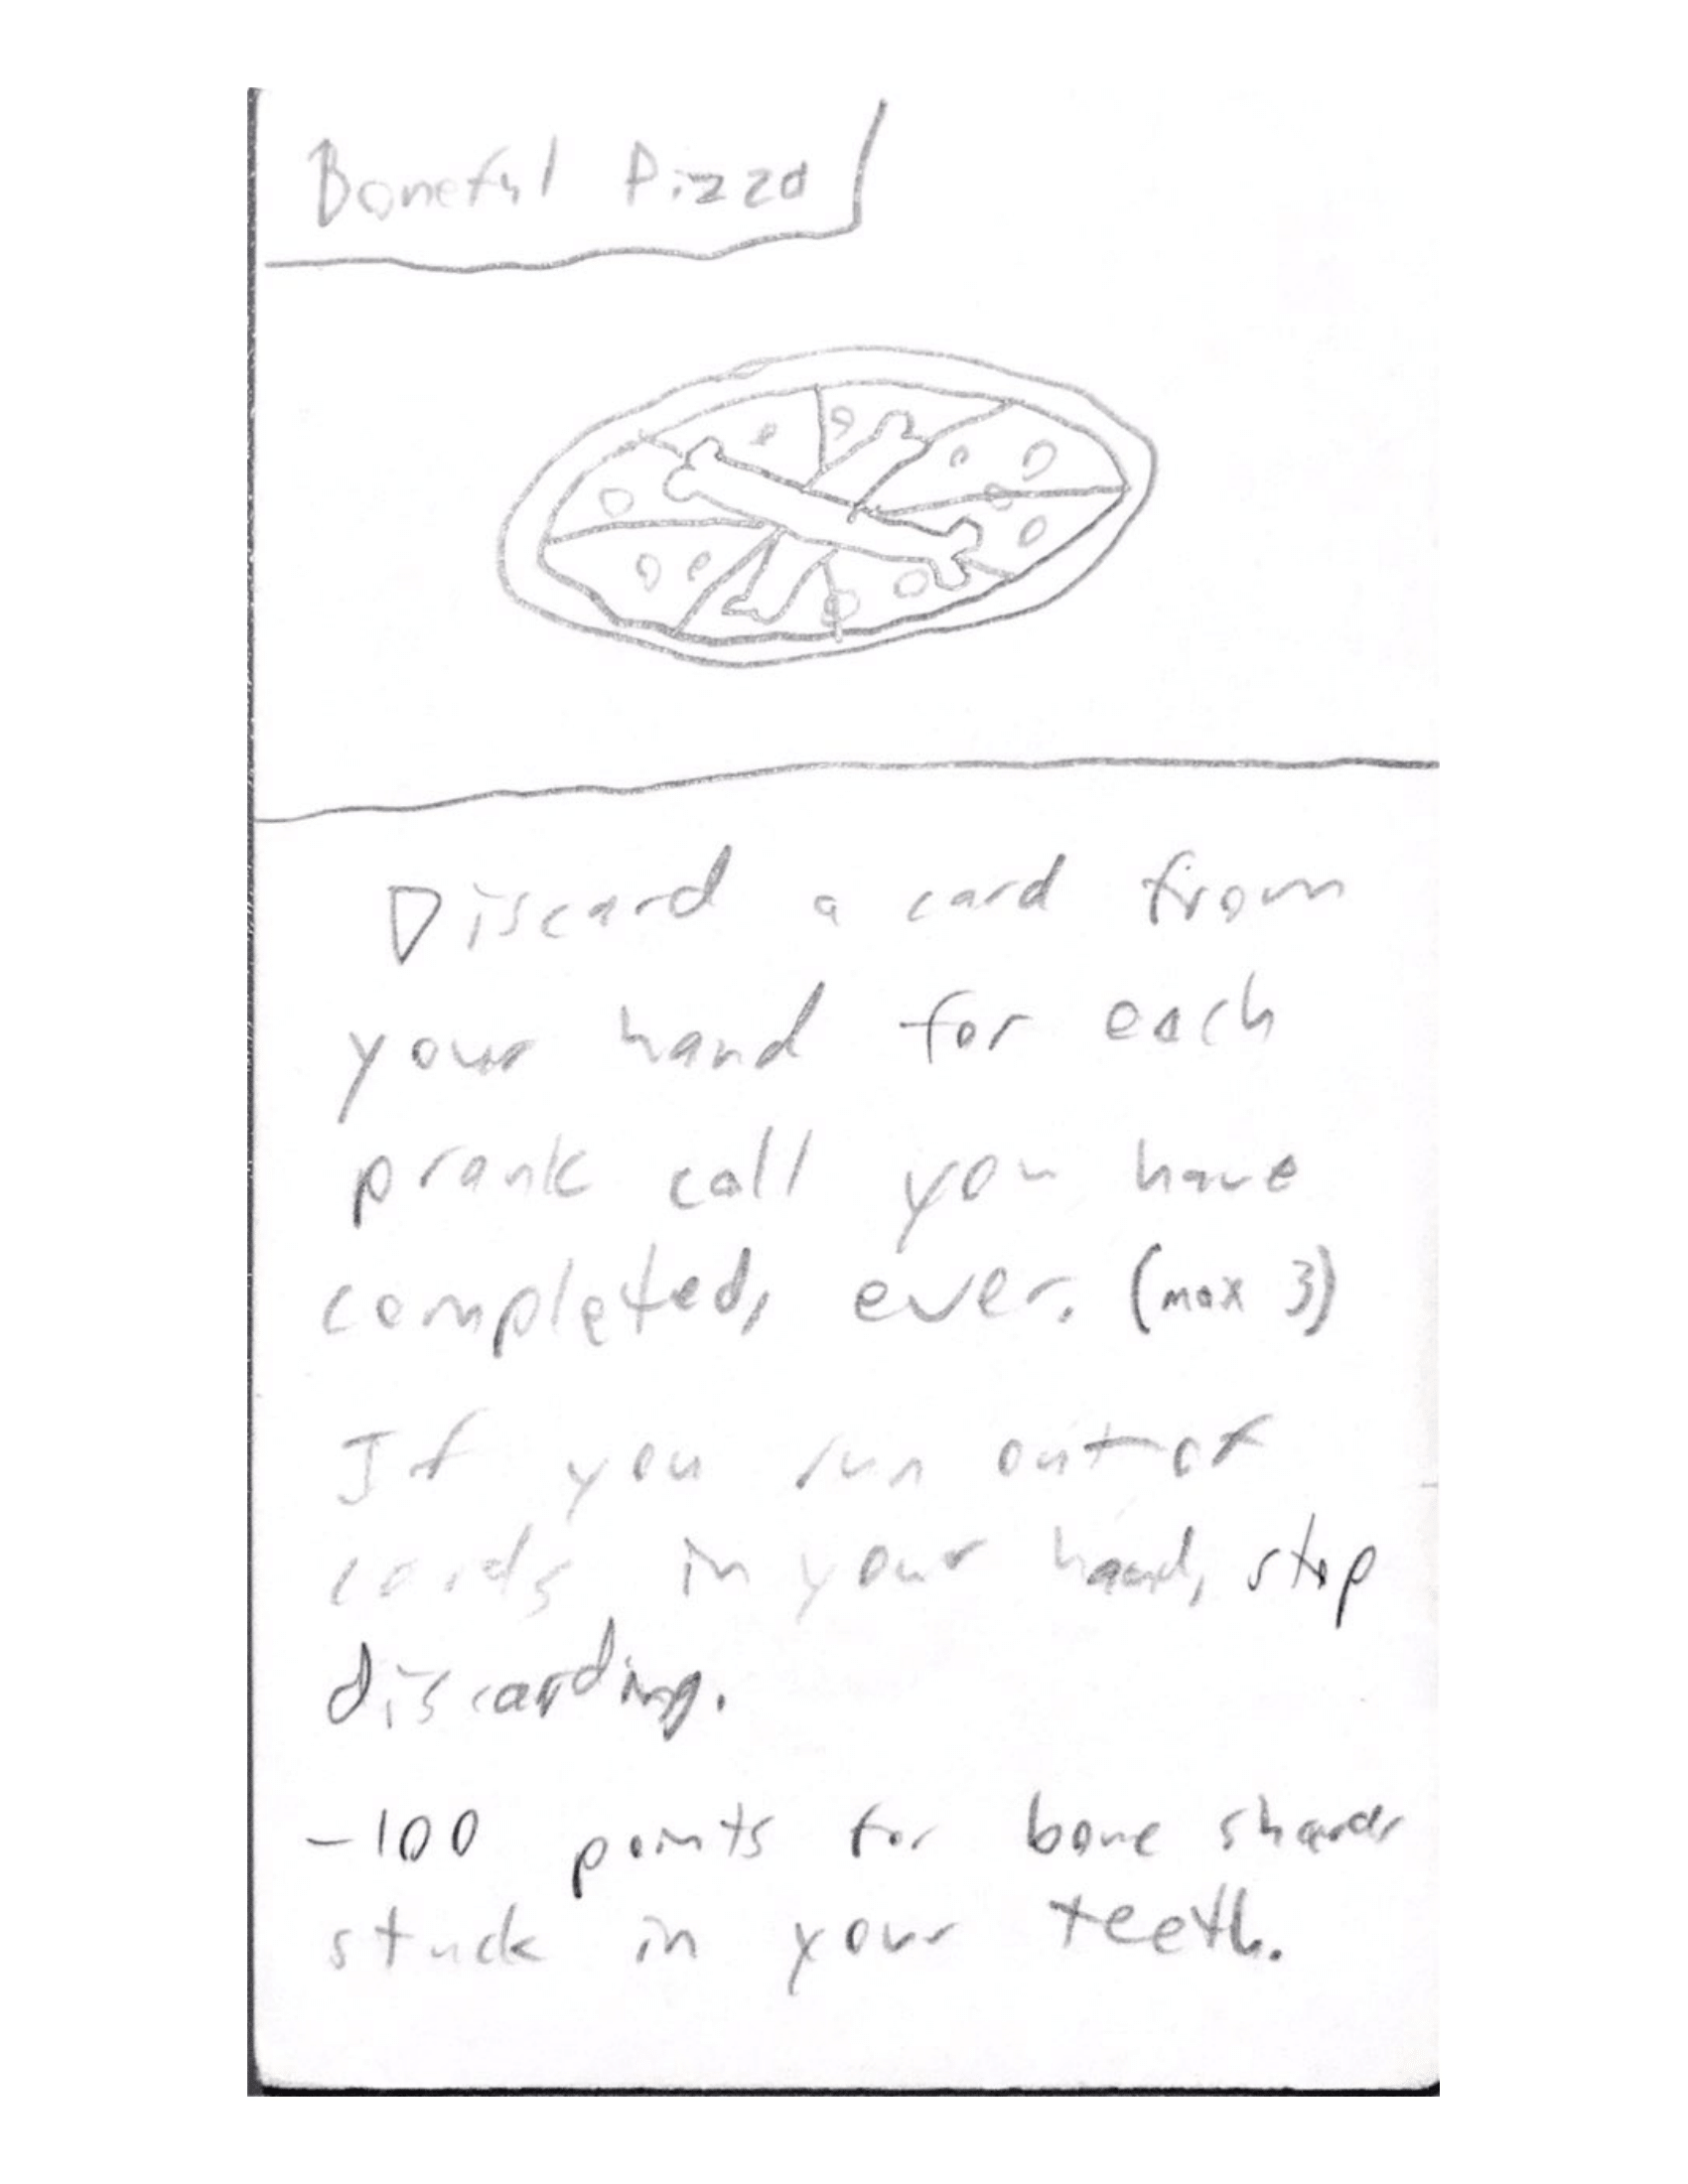 Boneful Pizza
Discard a card from
your hand for each
prank call you have
completed, ever. (max 3)
If you run out of
cards in your hand, stop
discarding.
-100 points for bone shards
stuck in your teeth.